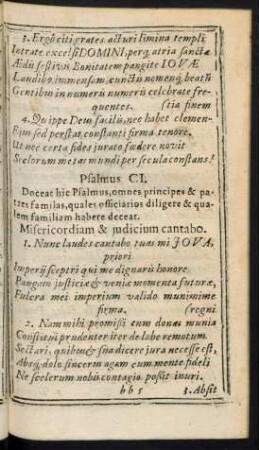 3. Ergò citi grates acturi limina templi
Intrate excelsi DOMINI, perq; atria sanctæ
Ædis festivis Bonitatem pangite JOVÆ
Laudibus immensam, cunctis nomenq; beatū
Gentibus in numeris numeris celebrate fre-
quentes. (stia finem
4. Quippe Deus facilis, nec habet clemen-
Ejus sed perstat constanti firma tenore,
Ut nec certa fides jurato fœdere novit
Scelorum metas mundi per secula constans!
Psalmus CI.
Doceat hic Psalmus, omnes principes & pa-
tres familas, quales officiarios diligere & qua-
lem familiam habere deceat.
Misericordiam & judicium cantabo.
1. Nunc laudes cantabo tuas mi JOVA,
priori
Imperij sceptri qui me dignaris honore
Pangam justiciæ & venia momenta futuræ,
Fulcra mei imperium valido munimine
firma. (regni
2. Nam mihi promissi cum donas munia
Constitui prudenter iter de labe remotum
Sectari, quibus & sua dicere jura necesse est,
Absq; dolo sincerus agam cum mente fideli
Ne scelerum nobis contagio possit inuri.
bb 5 3. Absit